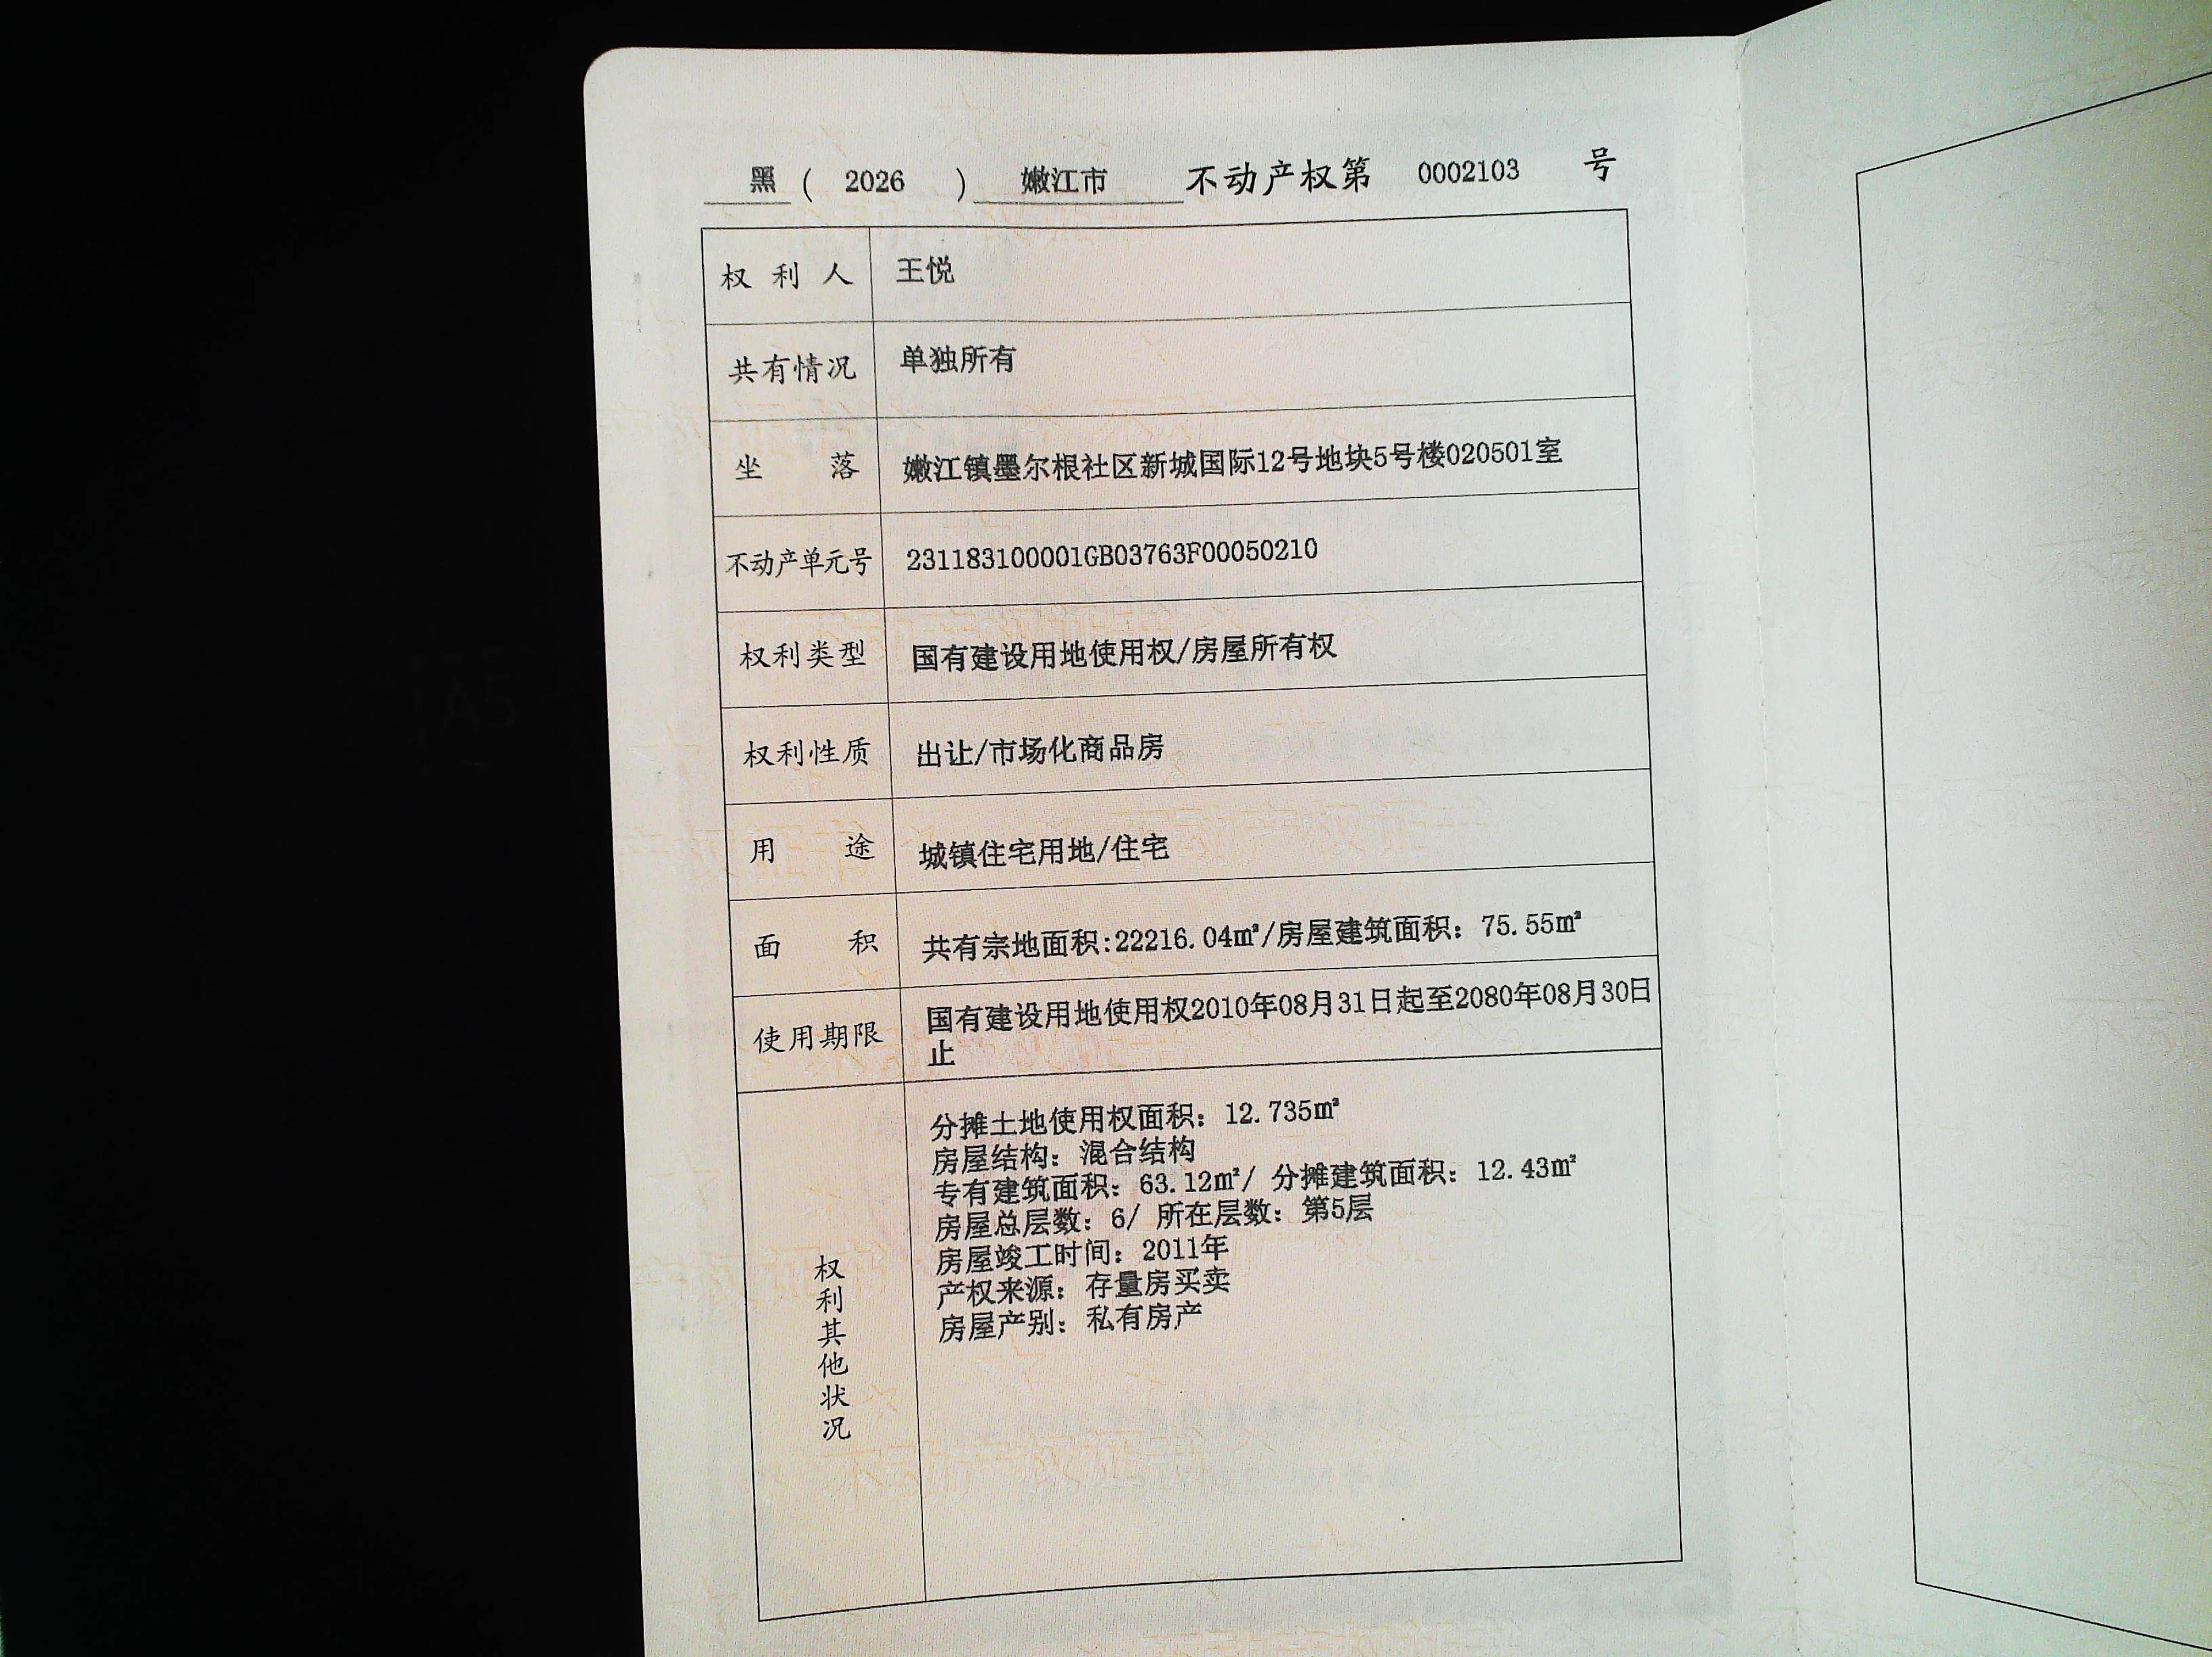 黑（ 2026 ） 嫩江市 不动产权第 0002103 号
权利人 王悦
共有情况 单独所有
坐落 嫩江镇墨尔根社区新城国际12号地块5号楼020501室
不动产单元号 231183100001GB03763F00050210
权利类型 国有建设用地使用权/房屋所有权
权利性质 出让/市场化商品房
用途 城镇住宅用地/住宅
面积 共有宗地面积:22216.04㎡/房屋建筑面积：75.55㎡
使用期限 国有建设用地使用权2010年08月31日起至2080年08月30日
止
权利其他状况
分摊土地使用权面积：12.735㎡
房屋结构：混合结构
专有建筑面积：63.12㎡/ 分摊建筑面积：12.43㎡
房屋总层数：6/ 所在层数：第5层
房屋竣工时间：2011年
产权来源：存量房买卖
房屋产别：私有房产